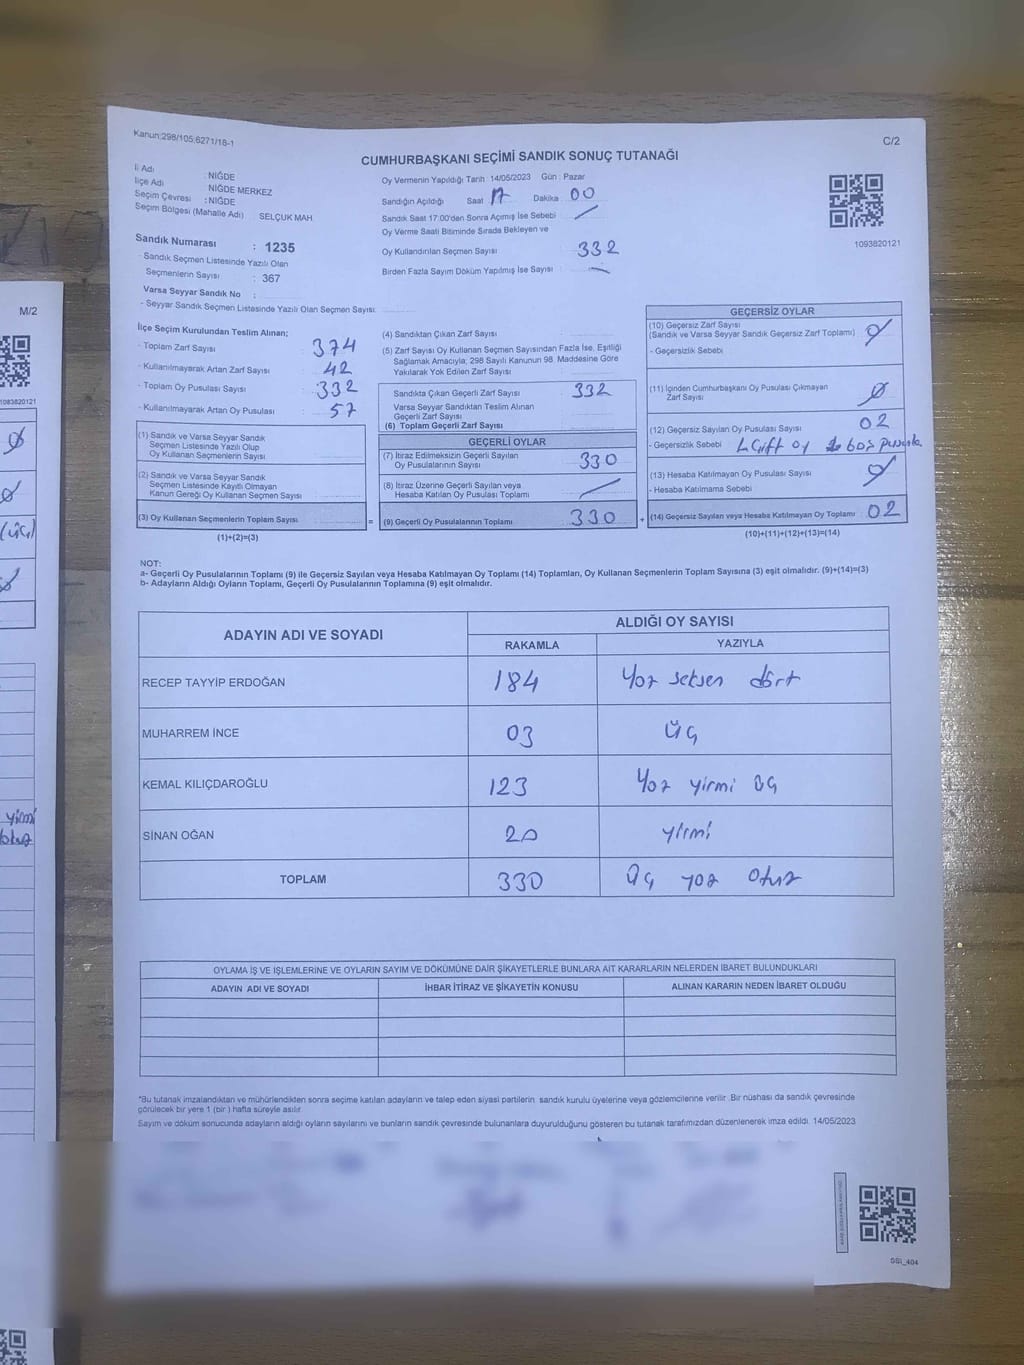 Kanun:298/105,6271/18-1
C/2
CUMHURBAŞKANI SEÇİMİ SANDIK SONUÇ TUTANAĞI
İl Adı : NİĞDE
İlçe Adı NİĞDE MERKEZ
Seçim Çevresi : NİĞDE
Seçim Bölgesi (Mahalle Adı) SELÇUK MAH
Sandık Numarası : 1235
- Sandık Seçmen Listesinde Yazılı Olan
Seçmenlerin Sayısı : 367
Varsa Seyyar Sandık No :
- Seyyar Sandık Seçmen Listesinde Yazılı Olan Seçmen Sayısı:
Oy Vermenin Yapıldığı Tarih :14/05/2023 Gün : Pazar
Sandığın Açıldığı Saat 17 Dakika 00
Sandık Saat 17:00'den Sonra Açımış İse Sebebi
Oy Verme Saati Bitiminde Sırada Bekleyen ve
Oy Kullandırılan Seçmen Sayısı 332
Birden Fazla Sayım Döküm Yapılmış İse Sayısı
1093820121
İlçe Seçim Kurulundan Teslim Alınan;
- Toplam Zarf Sayısı : 374
- Kullanılmayarak Artan Zarf Sayısı : 42
- Toplam Oy Pusulası Sayısı : 332
- Kullanılmayarak Artan Oy Pusulası : 57
(1) Sandık ve Varsa Seyyar Sandık
Seçmen Listesinde Yazılı Olup
Oy Kullanan Seçmenlerin Sayısı
(2) Sandık ve Varsa Seyyar Sandık
Seçmen Listesinde Kayıtlı Olmayan
Kanun Gereği Oy Kullanan Seçmen Sayısı
(3) Oy Kullanan Seçmenlerin Toplam Sayısı =
(1)+(2)=(3)
(4) Sandıktan Çıkan Zarf Sayısı
(5) Zarf Sayısı Oy Kullanan Seçmen Sayısından Fazla İse, Eşitliği
Sağlamak Amacıyla; 298 Sayılı Kanunun 98. Maddesine Göre
Yakılarak Yok Edilen Zarf Sayısı
Sandıkta Çıkan Geçerli Zarf Sayısı 332
Varsa Seyyar Sandıktan Teslim Alınan
Geçerli Zarf Sayısı
(6) Toplam Geçerli Zarf Sayısı
GEÇERLİ OYLAR
(7) İtiraz Edilmeksizin Geçerli Sayılan
Oy Pusulalarının Sayısı 330
(8) İtiraz Üzerine Geçerli Sayılan veya
Hesaba Katılan Oy Pusulası Toplamı
(9) Geçerli Oy Pusulalarının Toplamı 330 +
GEÇERSİZ OYLAR
(10) Geçersiz Zarf Sayısı
(Sandık ve Varsa Seyyar Sandık Geçersiz Zarf Toplamı) Ø
- Geçersizlik Sebebi
(11) İçinden Cumhurbaşkanı Oy Pusulası Çıkmayan
Zarf Sayısı Ø
(12) Geçersiz Sayılan Oy Pusulası Sayısı 02
- Geçersizlik Sebebi 1 çift oy 1 boş pusula
(13) Hesaba Katılmayan Oy Pusulası Sayısı Ø
- Hesaba Katılmama Sebebi
(14) Geçersiz Sayılan veya Hesaba Katılmayan Oy Toplamı 02
(10)+(11)+(12)+(13)=(14)
NOT:
a- Geçerli Oy Pusulalarının Toplamı (9) ile Geçersiz Sayılan veya Hesaba Katılmayan Oy Toplamı (14) Toplamları, Oy Kullanan Seçmenlerin Toplam Sayısına (3) eşit olmalıdır. (9)+(14)=(3)
b- Adayların Aldığı Oyların Toplamı, Geçerli Oy Pusulalarının Toplamına (9) eşit olmalıdır.
ADAYIN ADI VE SOYADI
ALDIĞI OY SAYISI
RAKAMLA YAZIYLA
RECEP TAYYİP ERDOĞAN 184 Yüz seksen dört
MUHARREM İNCE 03 üç
KEMAL KILIÇDAROĞLU 123 Yüz yirmi üç
SİNAN OĞAN 20 yirmi
TOPLAM 330 üç yüz otuz
OYLAMA İŞ VE İŞLEMLERİNE VE OYLARIN SAYIM VE DÖKÜMÜNE DAİR ŞİKAYETLERLE BUNLARA AİT KARARLARIN NELERDEN İBARET BULUNDUKLARI
ADAYIN ADI VE SOYADI İHBAR İTİRAZ VE ŞİKAYETİN KONUSU ALINAN KARARIN NEDEN İBARET OLDUĞU
*Bu tutanak imzalandıktan ve mühürlendikten sonra seçime katılan adayların ve talep eden siyasi partilerin sandık kurulu üyelerine veya gözlemcilerine verilir .Bir nüshası da sandık çevresinde
görülecek bir yere 1 (bir ) hafta süreyle asılır.
Sayım ve döküm sonucunda adayların aldığı oyların sayılarını ve bunların sandık çevresinde bulunanlara duyurulduğunu gösteren bu tutanak tarafımızdan düzenlenerek imza edildi. 14/05/2023
SSI_404
M/2
1083820121
Ø
Ø
(üç)
Ø
yirmi
otuz